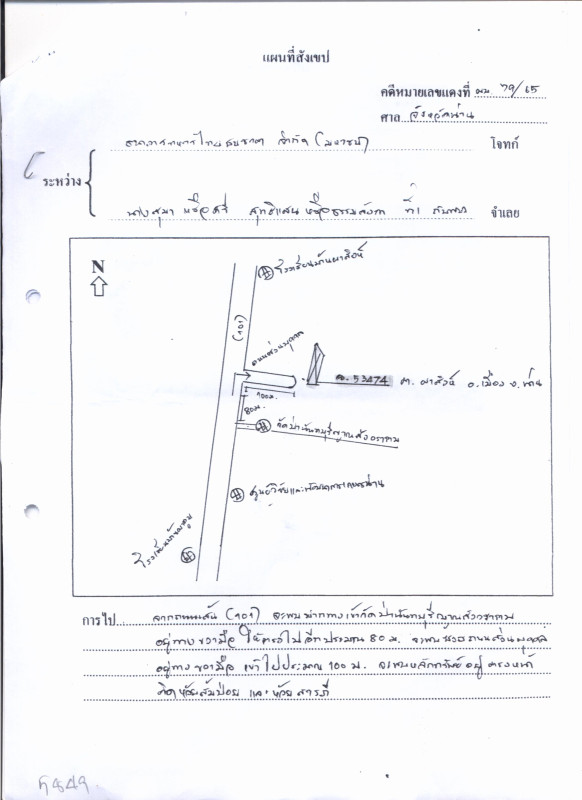 แผนที่สังเขป
คดีหมายเลขแดงที่ ผบ. 79/65
ศาล จังหวัดน่าน
ธนาคารทหารไทยธนชาต จำกัด (มหาชน) โจทก์
ระหว่าง
ที่1 กับพวก จำเลย
N
โรงเรียนบ้านผาสิงห์
(101)
ถนนส่วนบุคคล
100ม.
80ม.
ฉ. 53474 ต. ผาสิงห์ อ. เมือง จ. น่าน
วัดป่านันทบุรีญาณสังวราราม
ศูนย์วิจัยและพัฒนาการเกษตรน่าน
การไป จากถนนเส้น (101) จะพบปากทางเข้าวัดป่านันทบุรีญาณสังวราราม
อยู่ทางขวามือ ให้ตรงไปอีกประมาณ 80 ม. จะพบ ถนนส่วนบุคคล
อยู่ทางขวามือ เข้าไปประมาณ 100 ม. จะพบหลักทรัพย์ อยู่ ตรงหน้า
ติดห้วยส้มป่อย และห้วยสารภี